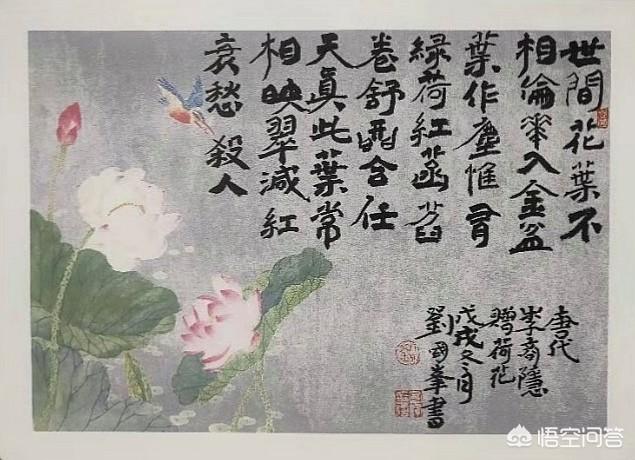 世間花葉不
相倫華入金盆
葉作塵惟有
綠荷紅菡萏
卷舒開合任
天真此葉常
相映翠減紅
衰愁殺人
唐代
李商隱
贈荷花
戊戌冬月
劉國峯書
悟空问答